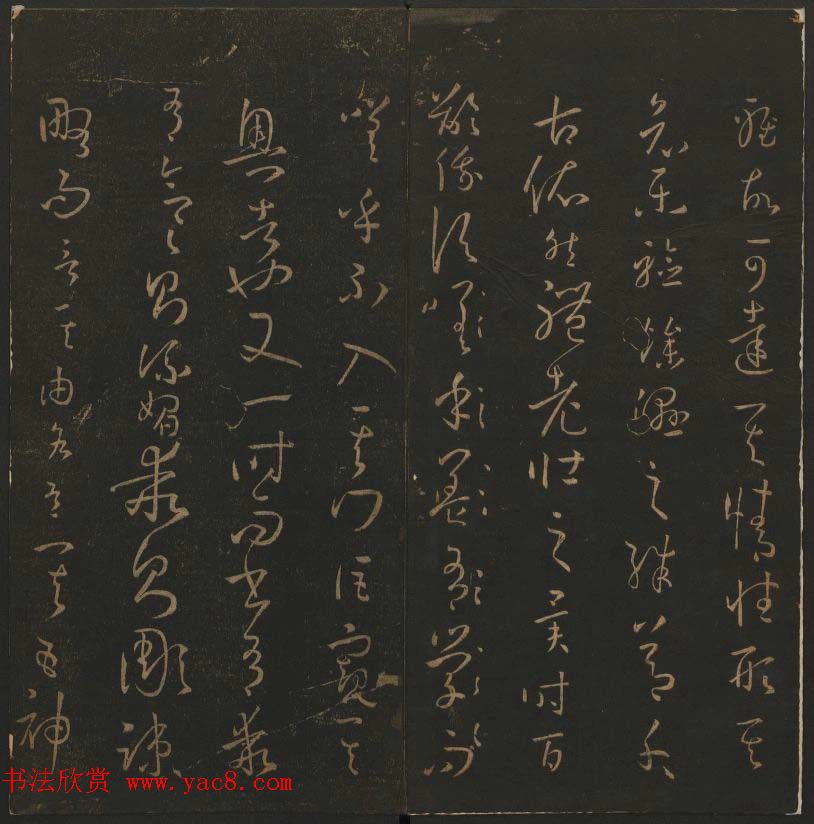 雅故可達其情性形其
哀樂驗燥濕之殊節千
古依然體老壯之異時百
齡俄頃
嗟乎不入其門詎窺其
奧者也又一時而書有乖
有合合則流媚乖則彫疎
略而言其由各有其五神
书法欣赏 www.yac8.com